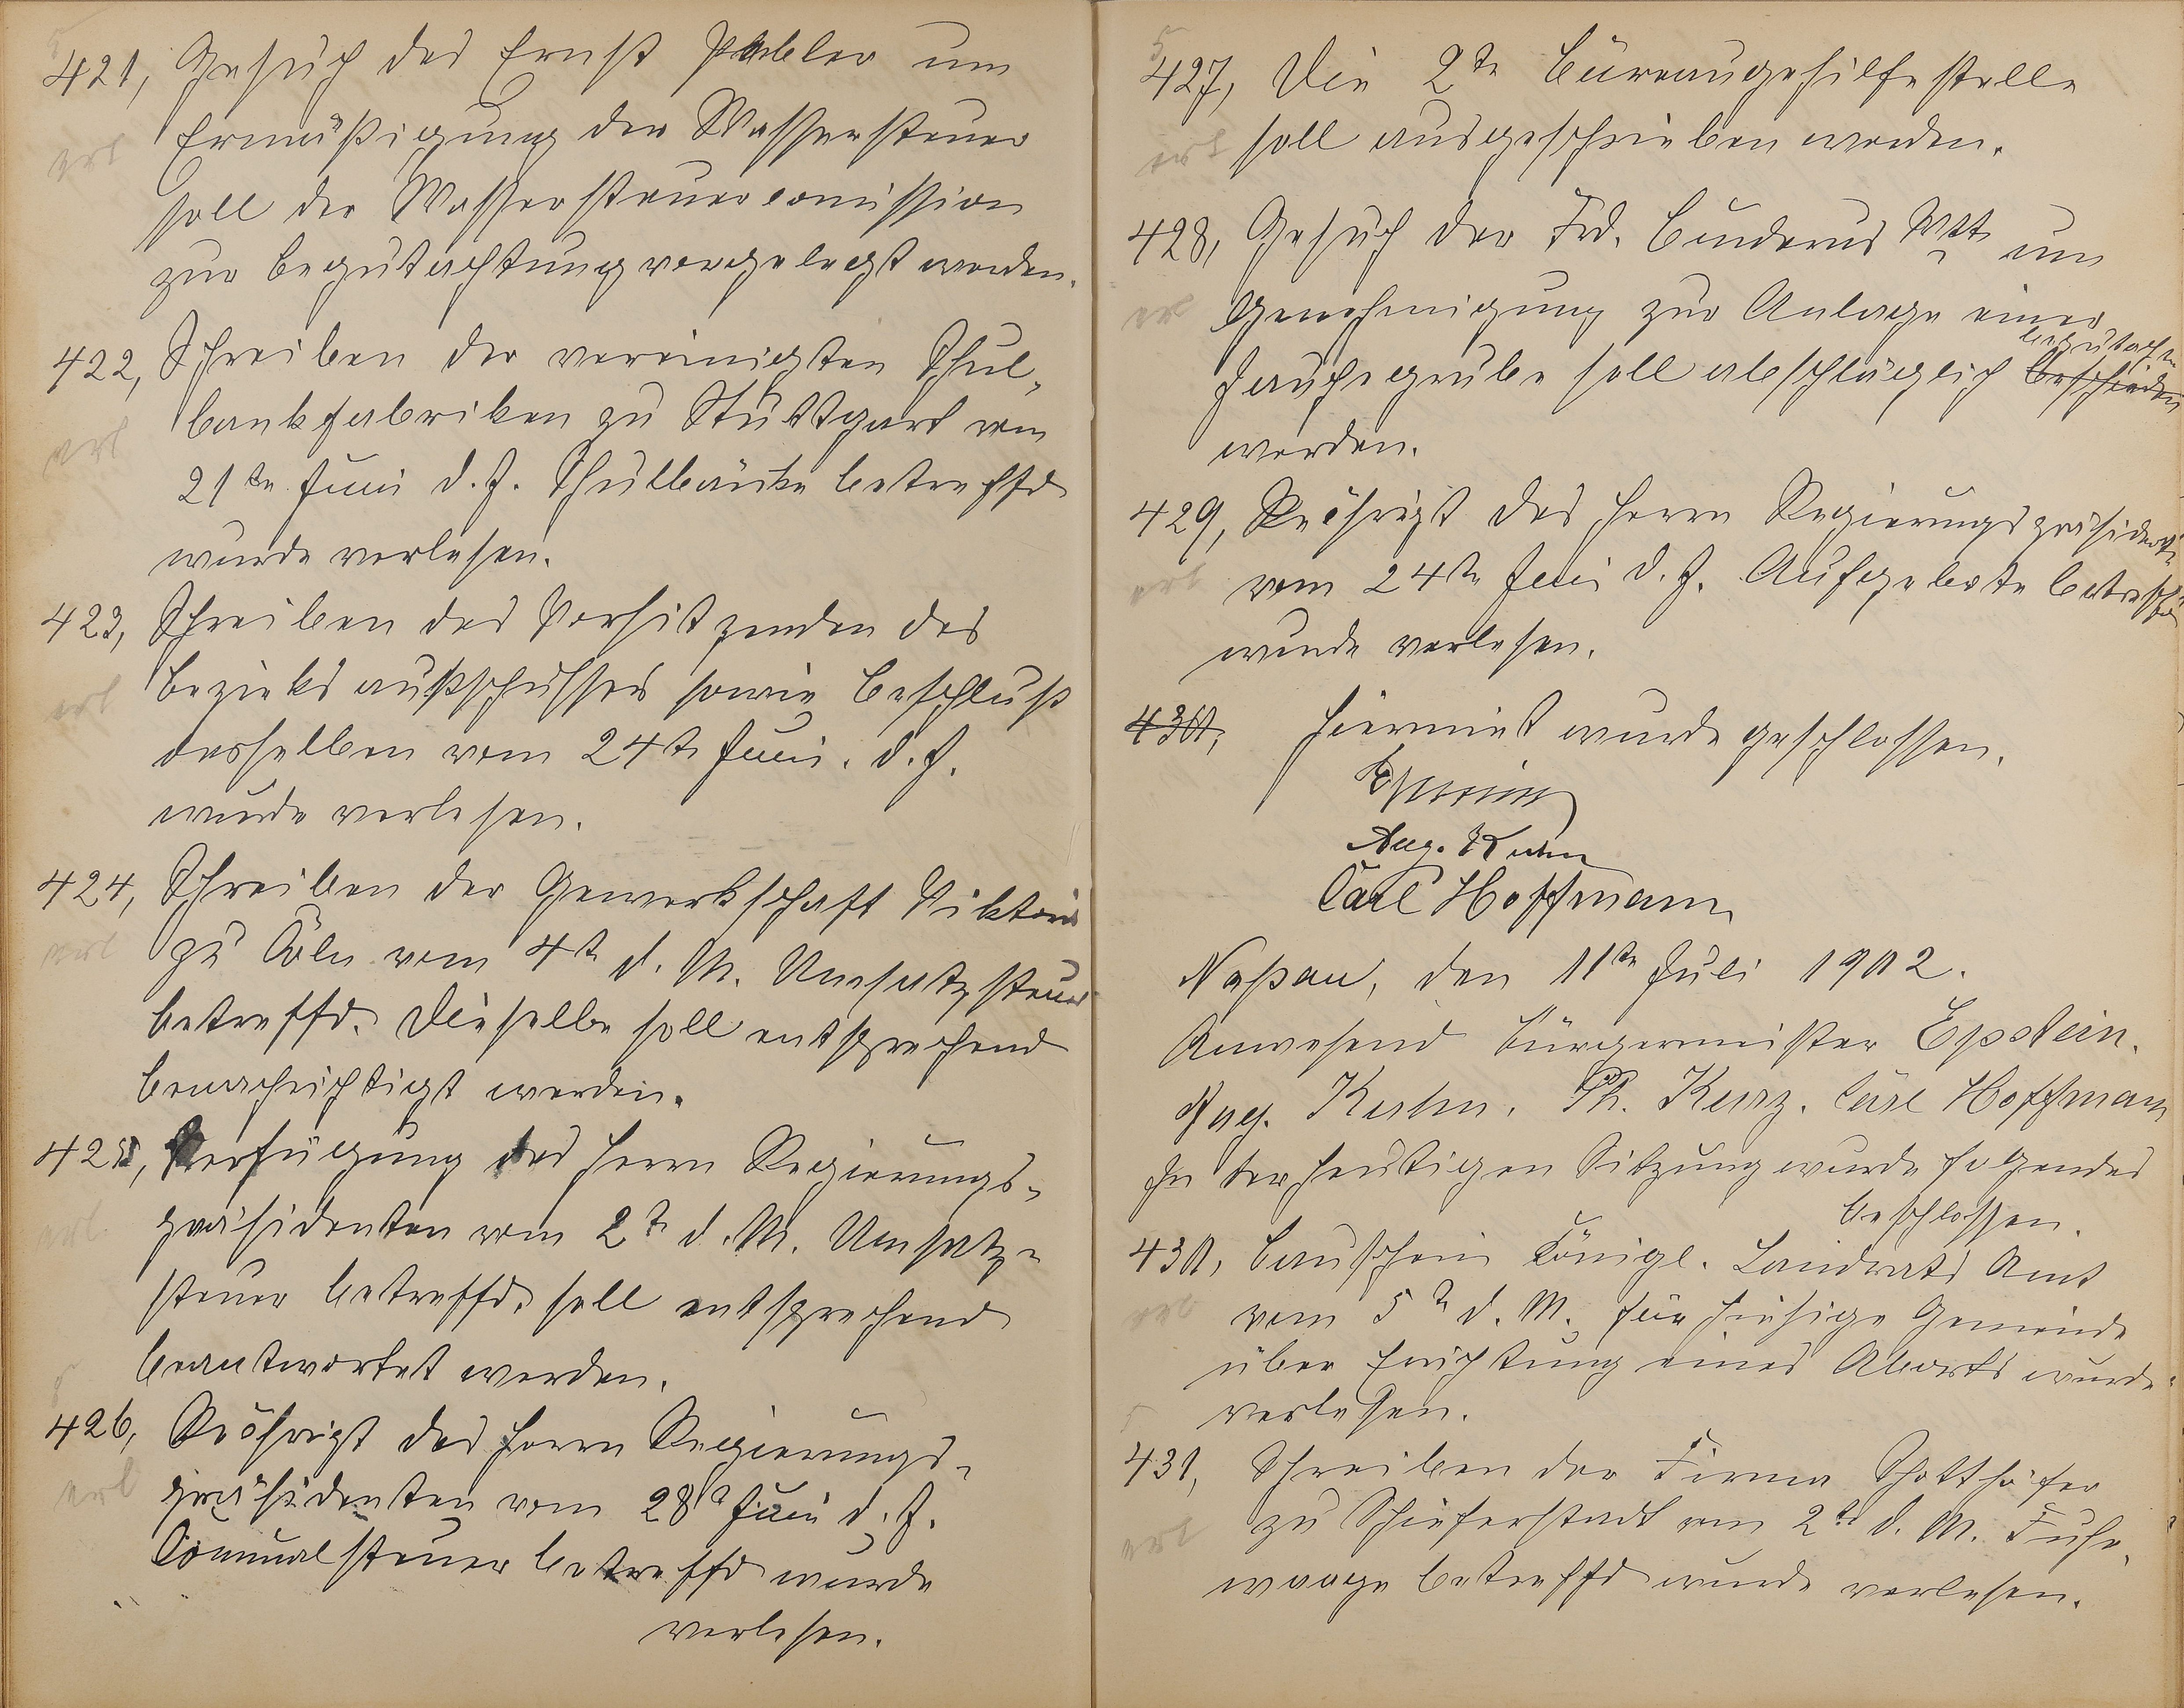 421, Gesuch des Ernst Pebler um
erl Ermäßigung der Wassersteuer
soll der Wassersteuercomission
zur Begutachtung vorgelegt werden.
422, Schreiben der vereinigten Schul-
erl bankfabriken zu Stuttgart vom
21ten Juni d. J. Schulbänke betreffd
wurde verlesen.
423, Schreiben des Vorsitzenden des
erl Bezirksaußschusses sowie Beschluß
desselben vom 24t Juni. d. J.
wurde verlesen.
424, Schreiben der Gewerkschaft Viktoria
erl zu Cöln vom 4t d. M. Umsatzsteuer
betreffd. Dieselbe soll entsprechend
benachrichtigt werden.
425, Verfügung des Herrn Regierungs-
erl präsidenten vom 2t d. M. Umsatz-
steuer betreffd. soll entsprechend
beantwortet werden.
426, Rescript des Herrn Regierungs-
erl präsidenten vom 28t Juni d. J.
Comunalsteuer betreffd wurde
verlesen.
427, Die 2te Büreaugehilfestelle
erl soll ausgeschrieben werden.
428, Gesuch der Frd. Buderus Wtt. um
erl Genehmigung zur Anlage einer
begutachtet
Jauchegrube soll abschläglich beschieden
werden.
429, Rescript des Herrn Regierungspräsidenten
erl vom 24ten Juni d. J. Aufgebote betreffd
wurde verlesen.
430, Hiermit wurde geschlossen.
Epstein
Aug. Kuhn
Carl Hoffmann
Naßau, den 11ten Juli 1902.
Anwesend Bürgermeister Epstein.
Aug. Kuhn. Ph. Kurz. Carl Hoffmann
In der heutigen Sitzung wurde folgendes
beschlossen.
430, Bauschein Königl. Landrats Amt
erl vom 5t d. M. für hiesige Gemeinde
über Errichtung eines Aborts wurde
verlesen.
431, Schreiben der Firma Schotthöfer
erl zu Schifferstadt vom 2t d. M. Fuhr-
waage betreffd wurde verlesen.